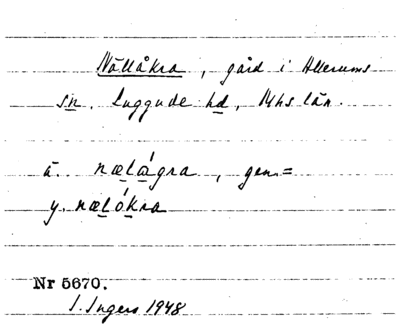 Nällåkra, gård i Allerums
sn. Luggude hd, Mhs län.
ä. nælágra, gen=
y. nælókra
Nr 5670.
I. Ingers 1948